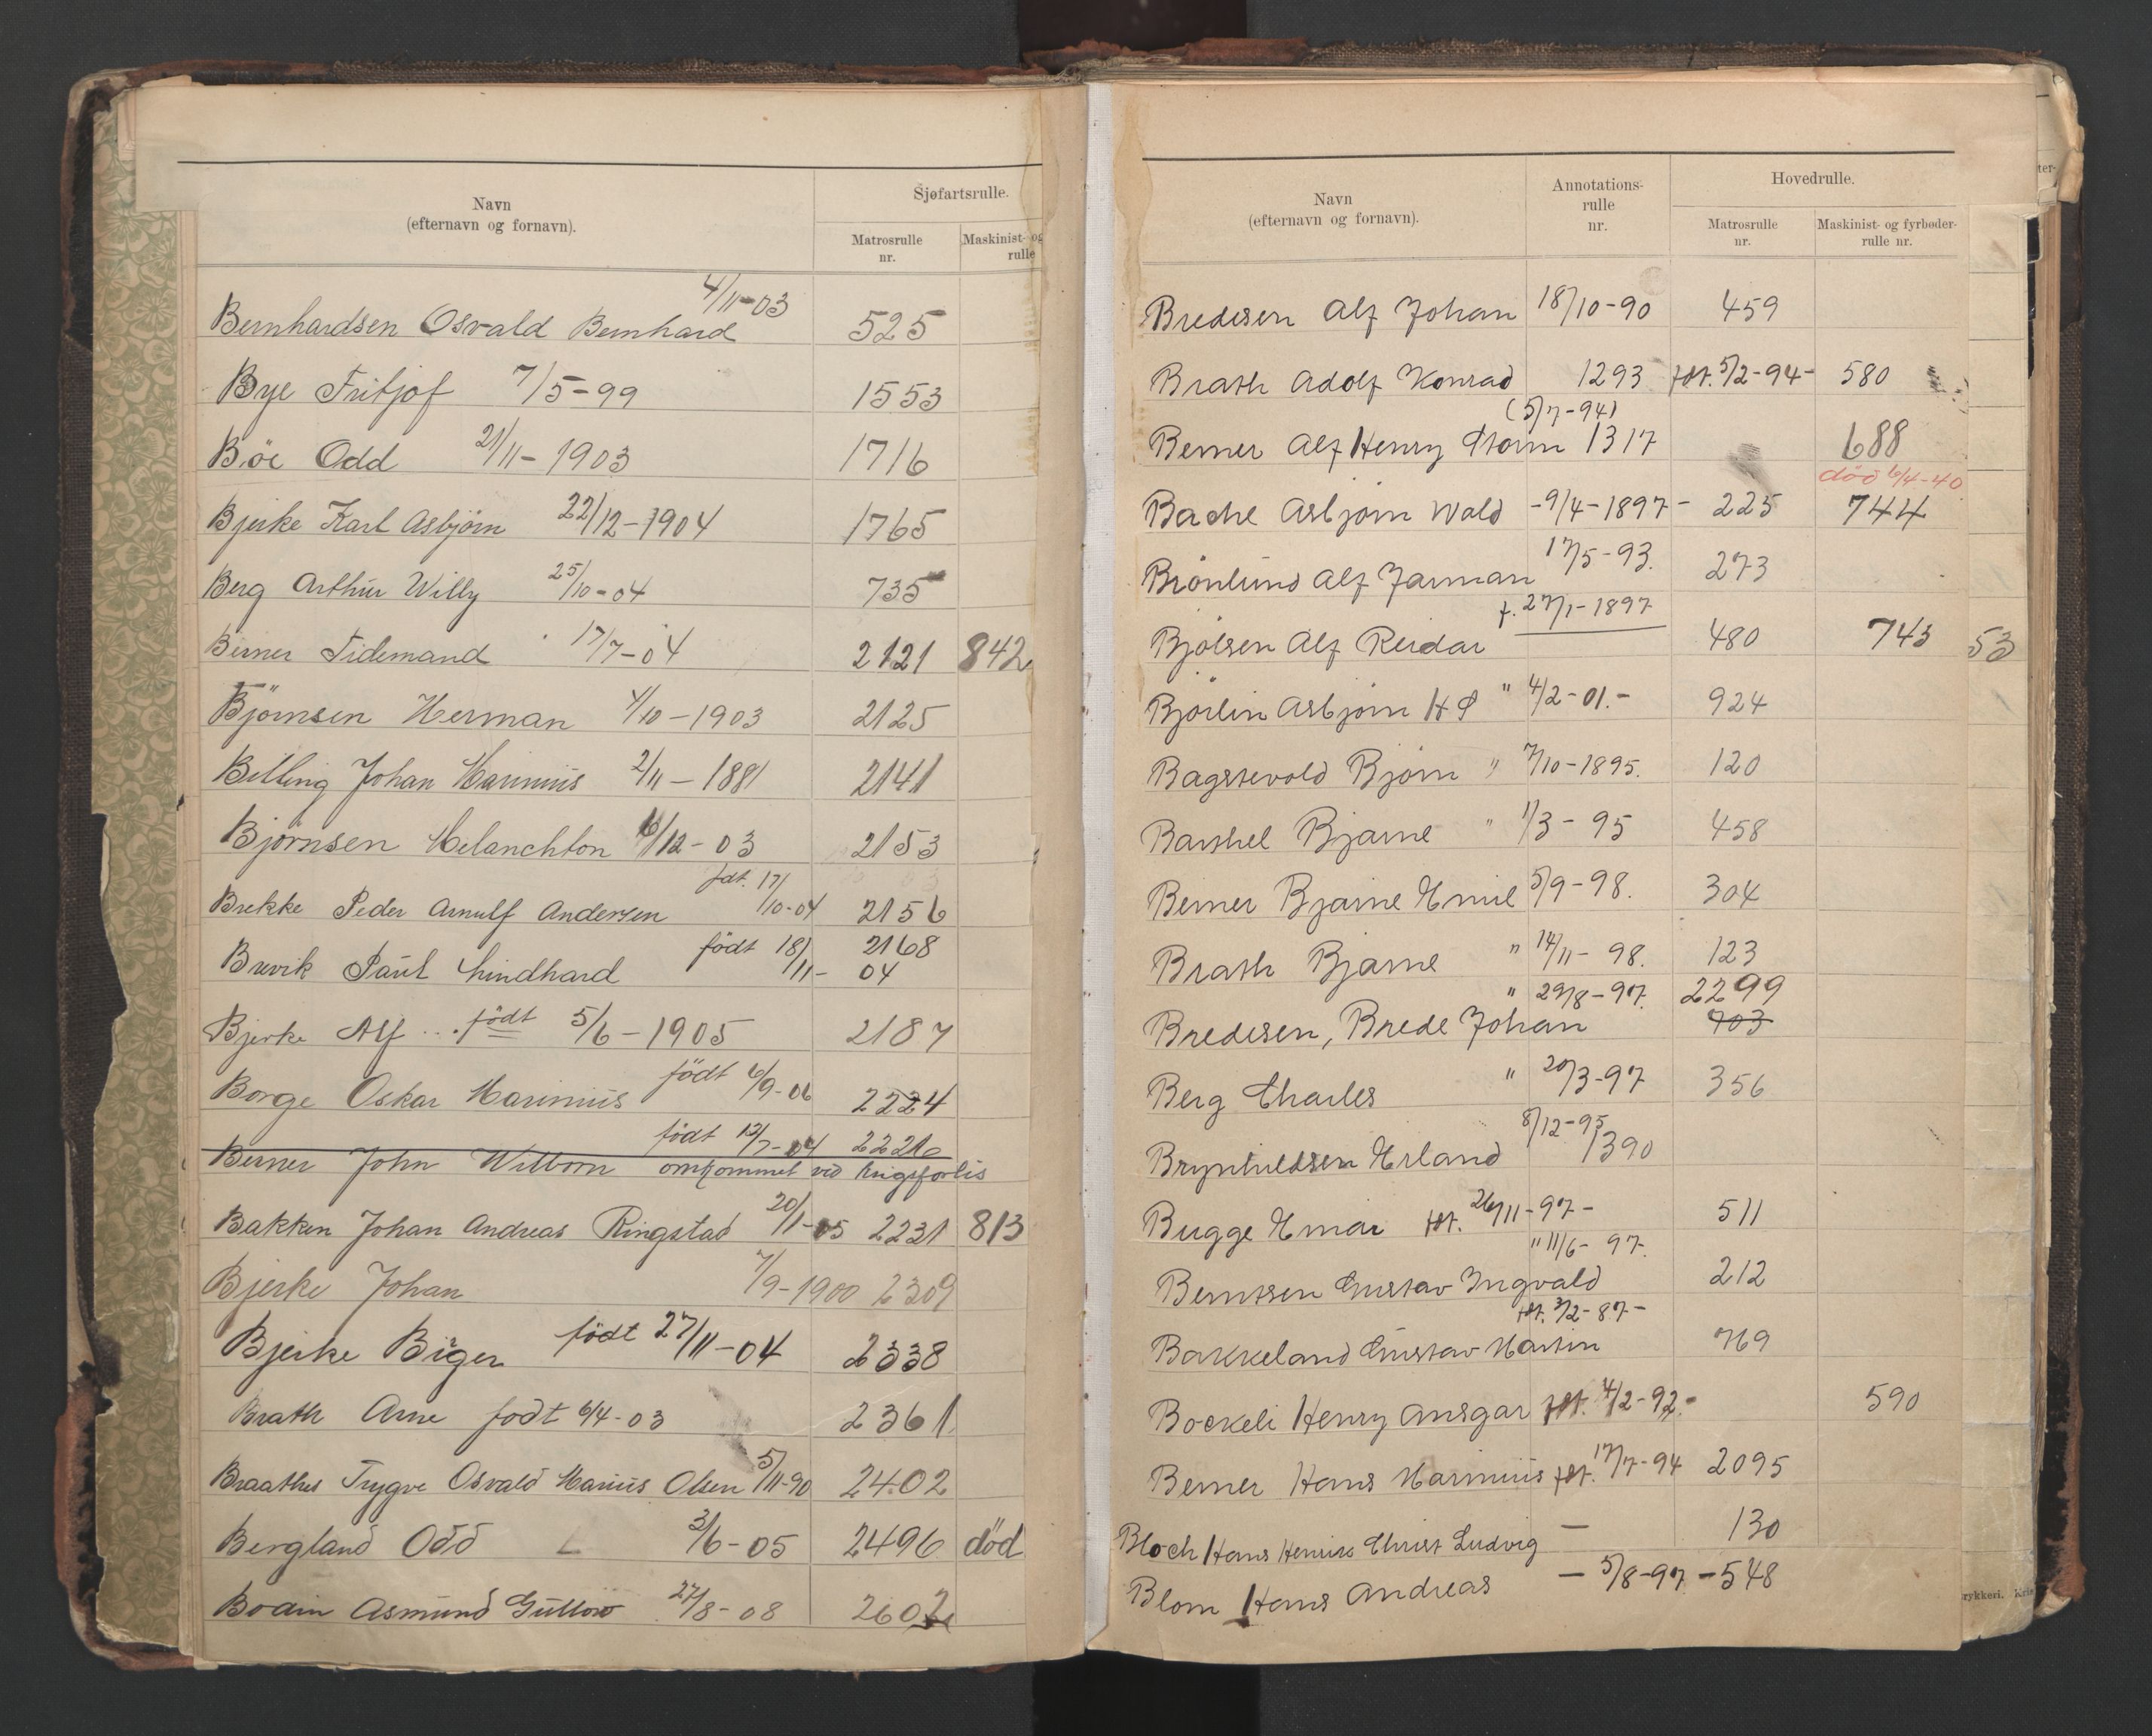 Navn
(efternavn og fornavn).
Sjøfartsrulle.
Matrosrulle
nr.
Maskinist- og
rulle
Bernhardsen Osvald Bernhard 4/11-03 525
Bye Fritjof 7/5-99 1553
Böe Odd 21/11-1903 1716
Bjerke Karl Asbjörn 22/12-1904 1765
Berg Arthur Willy 25/10-04 735
Berner Tidemand 17/7-04 2121 842
Björnsen Herman 4/10-1903 2125
Billing Johan Marinius 2/11-1881 2141
Björnsen Melanchton 6/12-03 2153
Brekke Peder Arnulf Andersen fdt. 17/10-04 2156
Brevik Paul Lindhard födt 18/11-04 2168
Bjerke Alf födt 5/6-1905 2187
Borge Oskar Marinius födt 6/9-06 2224
Berner John Wilborn födt 13/7-04 2226
omkommet ved krigsforlis
Bakken Johan Andreas Ringstad 20/1-05 2231 813
Bjerke Johan 7/9-1900 2309
Bjerke Birger födt 27/11-04 2338
Brath Arne födt 6/4-03 2361
Braathes Trygve Osvald Marius Olsen 5/11-90 2402
Bergland Odd 3/6-05 2496 död
Asmund 27/8-08
Navn
(efternavn og fornavn).
Annotations-
rulle
nr.
Hovedrulle.
Matrosrulle
nr.
Maskinist- og fyrbøder-
rulle nr.
Bredesen Alf Johan 18/10-90 459
Brath Adolf Konrad 1293 fdt. 5/2-94- 580
(5/7-94)
Berner Alf Henry Storm 1317 688
död 6/4-40
Bache Asbjørn Wold -9/4-1897- 225 744
Brönlund Alf Jarman 17/5-93. 273
f. 27/1-1897
Bjölsen Alf Reidar 480 743 53
Björlin Asbjørn H S " 4/2-01.- 924
Bagstevold Bjørn " 7/10-1895. 120
Barthel Bjarne " 1/3-95 458
Berner Bjarne Emil 5/9-98. 304
Brath Bjarne " 14/11-98. 123
" 29/8-97. 2299
Bredesen, Brede Johan 703
Berg Charles " 20/3-97 356
8/12-95
Brynhildsen Erland 1390
Bugge Einar fdt. 26/11-97- 511
" 11/6-97.
Berntsen Gustav Ingvald 212
fdt. 3/2-87-
Bakkeland Gustav Martin 769
Bockeli Henry Ansgar fdt. 4/2-92- 590
Berner Hans Marinius fdt. 17/7-94 2095
Bloch Hans Henrik Christ Ludvig — 130
Blom Hans Andreas — 5/8-97 - 548